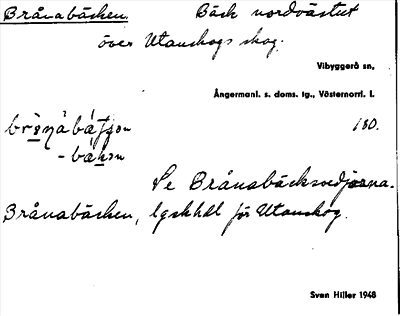 Brånabäcken. Bäck nordvästut
över Utanskogs skog.
Vibyggerå sn,
Ångermanl. s. doms. tg., Västernorrl. l.
180.
Se Brånabäcksvedjorna.
Brånabäcken, lgskhdl för Utanskog.
Sven Hiller 1948